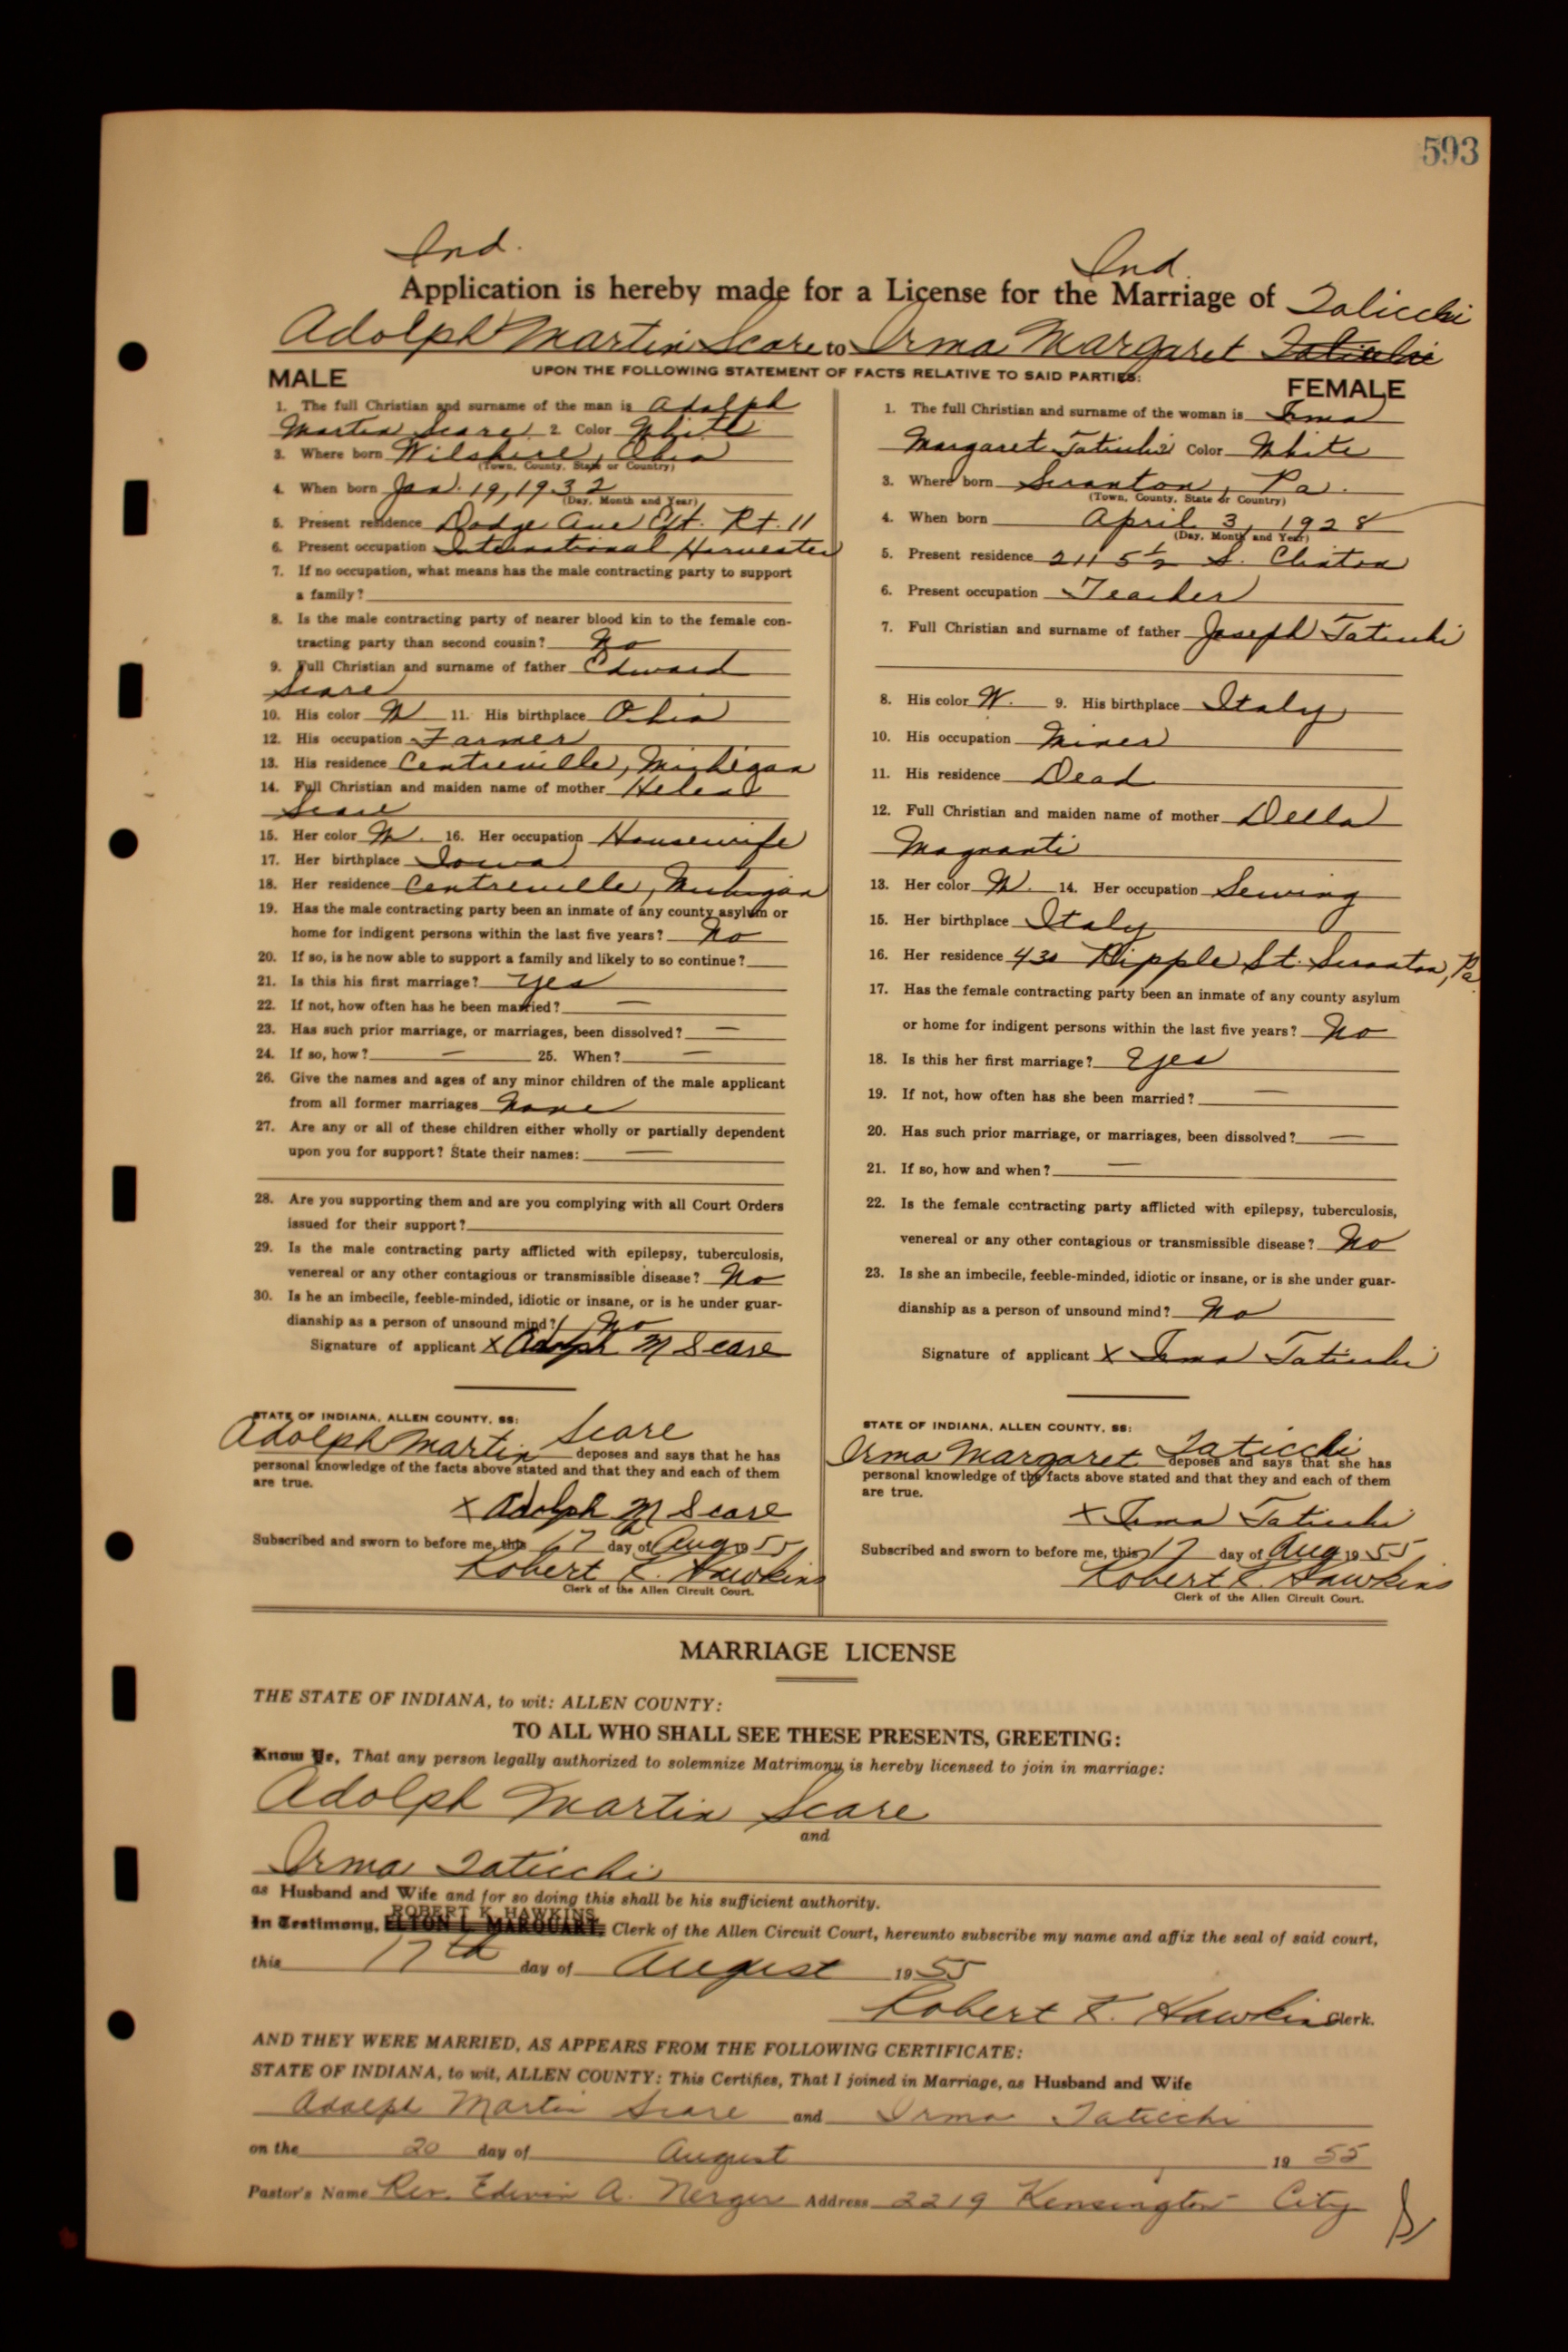 593
Ind. Ind.
Application is hereby made for a License for the Marriage of Taticchi
Adolph Martin Scare to Irma Margaret
UPON THE FOLLOWING STATEMENT OF FACTS RELATIVE TO SAID PARTIES:
MALE
1. The full Christian and surname of the man is Adolph
Martin Scare 2. Color White
3. Where born Wilshire, Ohio
(Town, County, State or Country)
4. When born Jan. 19, 1932
(Day, Month and Year)
5. Present residence Dodge Ave Ext. Rt. 11
6. Present occupation International Harvester
7. If no occupation, what means has the male contracting party to support
a family?
8. Is the male contracting party of nearer blood kin to the female con-
tracting party than second cousin? No
9. Full Christian and surname of father Edward
Scare
10. His color W 11. His birthplace Ohio
12. His occupation Farmer
13. His residence Centreville, Michigan
14. Full Christian and maiden name of mother Helen
Scare
15. Her color W. 16. Her occupation Housewife
17. Her birthplace Iowa
18. Her residence Centreville, Michigan
19. Has the male contracting party been an inmate of any county asylum or
home for indigent persons within the last five years? No
20. If so, is he now able to support a family and likely to so continue?
21. Is this his first marriage? Yes
22. If not, how often has he been married? —
23. Has such prior marriage, or marriages, been dissolved? —
24. If so, how? — 25. When? —
26. Give the names and ages of any minor children of the male applicant
from all former marriages None
27. Are any or all of these children either wholly or partially dependent
upon you for support? State their names: —
28. Are you supporting them and are you complying with all Court Orders
issued for their support?
29. Is the male contracting party afflicted with epilepsy, tuberculosis,
venereal or any other contagious or transmissible disease? No
30. Is he an imbecile, feeble-minded, idiotic or insane, or is he under guar-
dianship as a person of unsound mind? No
Signature of applicant X Adolph M Scare
STATE OF INDIANA, ALLEN COUNTY, SS:
Adolph Martin Scare deposes and says that he has
personal knowledge of the facts above stated and that they and each of them
are true.
X Adolph M Scare
Subscribed and sworn to before me, this 17 day of Aug 19 55
Robert K. Hawkins
Clerk of the Allen Circuit Court.
FEMALE
1. The full Christian and surname of the woman is Irma
Margaret Taticchi 2 Color White
3. Where born Scranton, Pa.
(Town, County, State or Country)
4. When born April 3, 1928
(Day, Month and Year)
5. Present residence 2115½ S. Clinton
6. Present occupation Teacher
7. Full Christian and surname of father Joseph Taticchi
8. His color W. 9. His birthplace Italy
10. His occupation Miner
11. His residence Dead
12. Full Christian and maiden name of mother Della
Magnanti
13. Her color W. 14. Her occupation Sewing
15. Her birthplace Italy
16. Her residence 430 Hipple St. Scranton, Pa
17. Has the female contracting party been an inmate of any county asylum
or home for indigent persons within the last five years? No
18. Is this her first marriage? Yes
19. If not, how often has she been married? —
20. Has such prior marriage, or marriages, been dissolved? —
21. If so, how and when? —
22. Is the female contracting party afflicted with epilepsy, tuberculosis,
venereal or any other contagious or transmissible disease? No
23. Is she an imbecile, feeble-minded, idiotic or insane, or is she under guar-
dianship as a person of unsound mind? No
Signature of applicant X Irma Taticchi
STATE OF INDIANA, ALLEN COUNTY, SS:
Irma Margaret Taticchi deposes and says that she has
personal knowledge of the facts above stated and that they and each of them
are true.
X Irma Taticchi
Subscribed and sworn to before me, this 17 day of Aug 19 55
Robert K. Hawkins
Clerk of the Allen Circuit Court.
MARRIAGE LICENSE
THE STATE OF INDIANA, to wit: ALLEN COUNTY:
TO ALL WHO SHALL SEE THESE PRESENTS, GREETING:
Know Ye, That any person legally authorized to solemnize Matrimony is hereby licensed to join in marriage:
Adolph Martin Scare
and
Irma Taticchi
as Husband and Wife and for so doing this shall be his sufficient authority.
ROBERT K. HAWKINS
In Testimony, ELTON L. MARQUART, Clerk of the Allen Circuit Court, hereunto subscribe my name and affix the seal of said court,
this 17th day of August 19 55
Robert K. Hawkins Clerk.
AND THEY WERE MARRIED, AS APPEARS FROM THE FOLLOWING CERTIFICATE:
STATE OF INDIANA, to wit, ALLEN COUNTY: This Certifies, That I joined in Marriage, as Husband and Wife
Adolph Martin Scare and Irma Taticchi
on the 20 day of August 19 55
Pastor's Name Rev. Edwin A. Nerger Address 2219 Kensington City